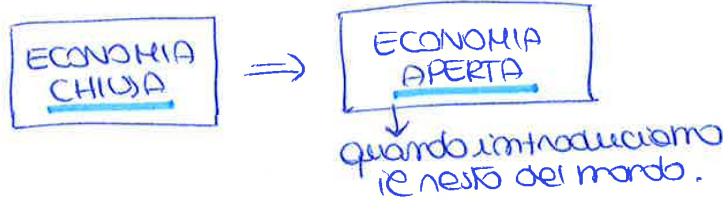 ECONOMIA
CHIUSA
⇒
ECONOMIA
APERTA
quando introduciamo
il resto del mondo.